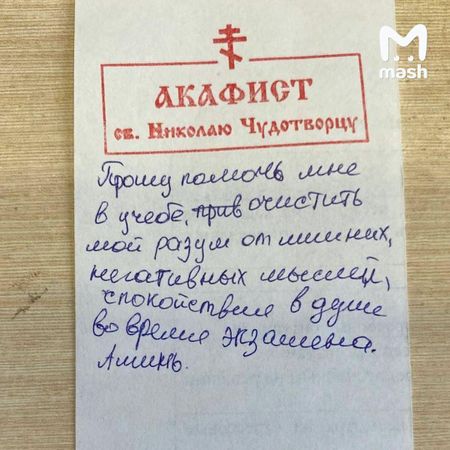 mash
АКАФИСТ
св. Николаю Чудотворцу
Прошу помочь мне
в учебе, прив очистить
мой разум от лишних,
негативных мыслей,
спокойствия в душе
во время экзамена.
Аминь.